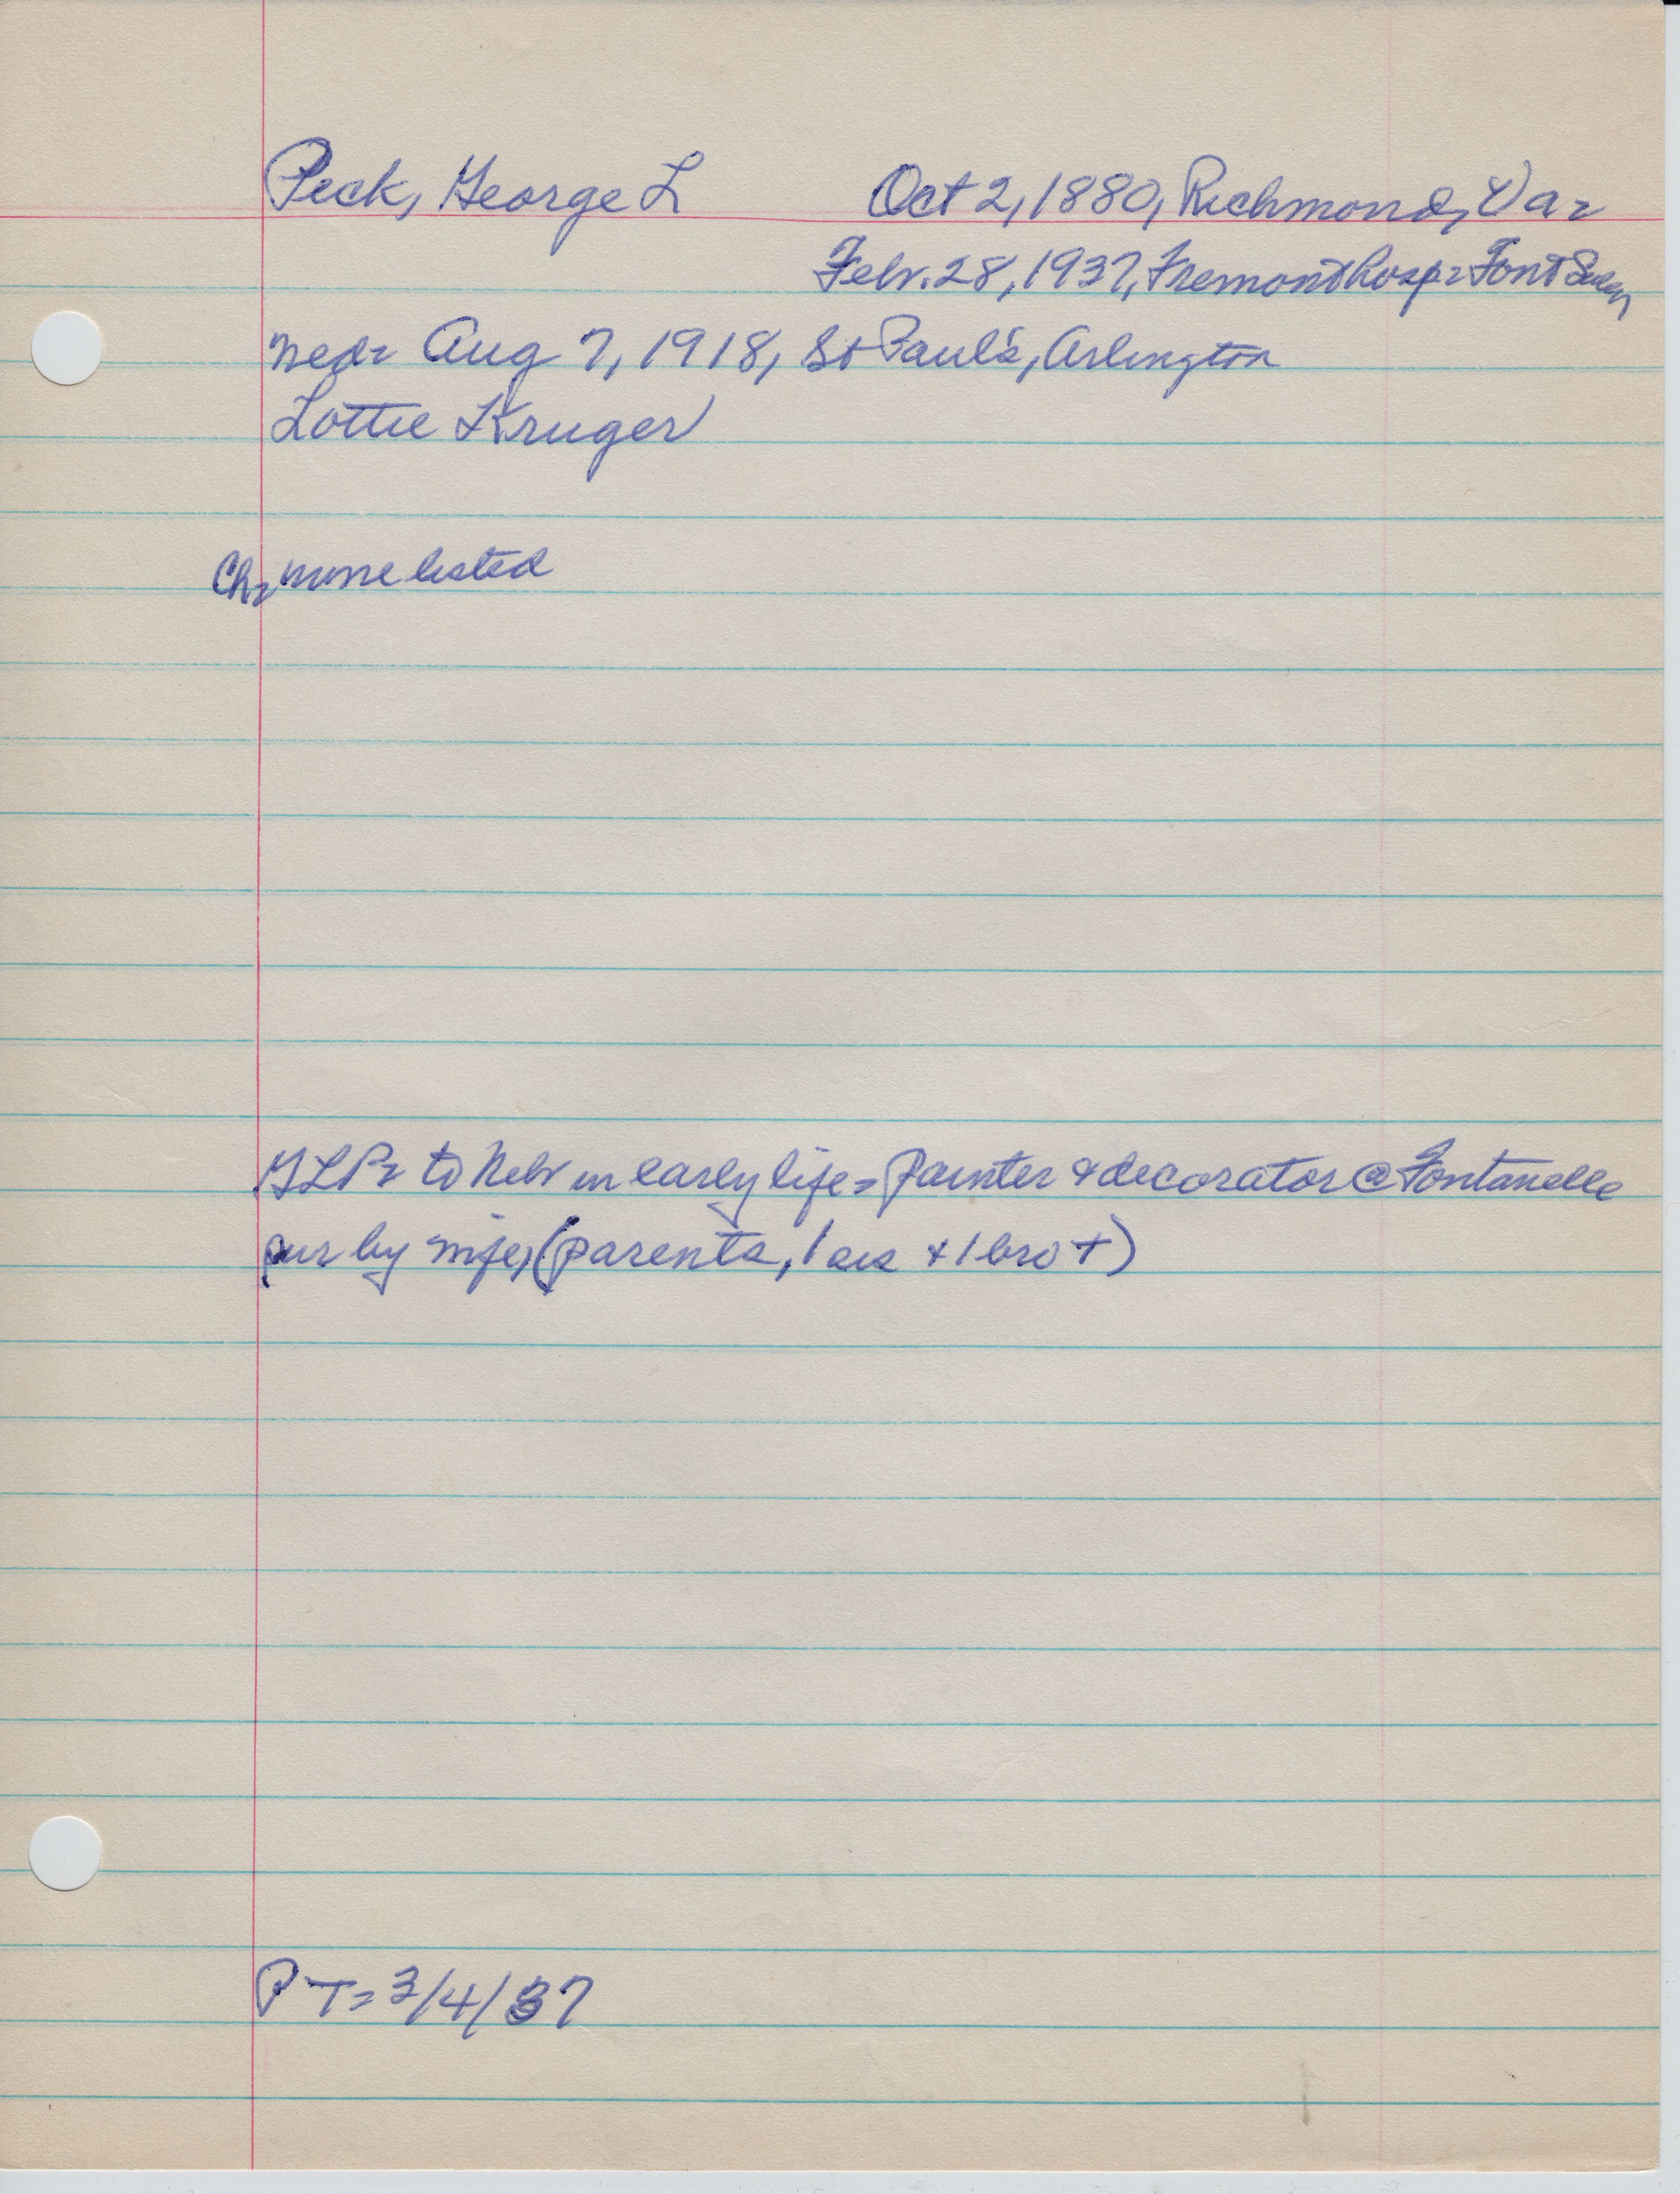 Peck, George L Oct 2, 1880, Richmond, Va=
Feb. 28, 1937, Fremont hosp= Font
Med= Aug 7, 1918, St Paul's, Arlington
Lottie Kruger
Ch= none listed
GLP= to Neb in early life= painter & decorator @ Fontanelle
sur by wife, (parents, 1 sis & 1 bro +)
PT= 3/4/37